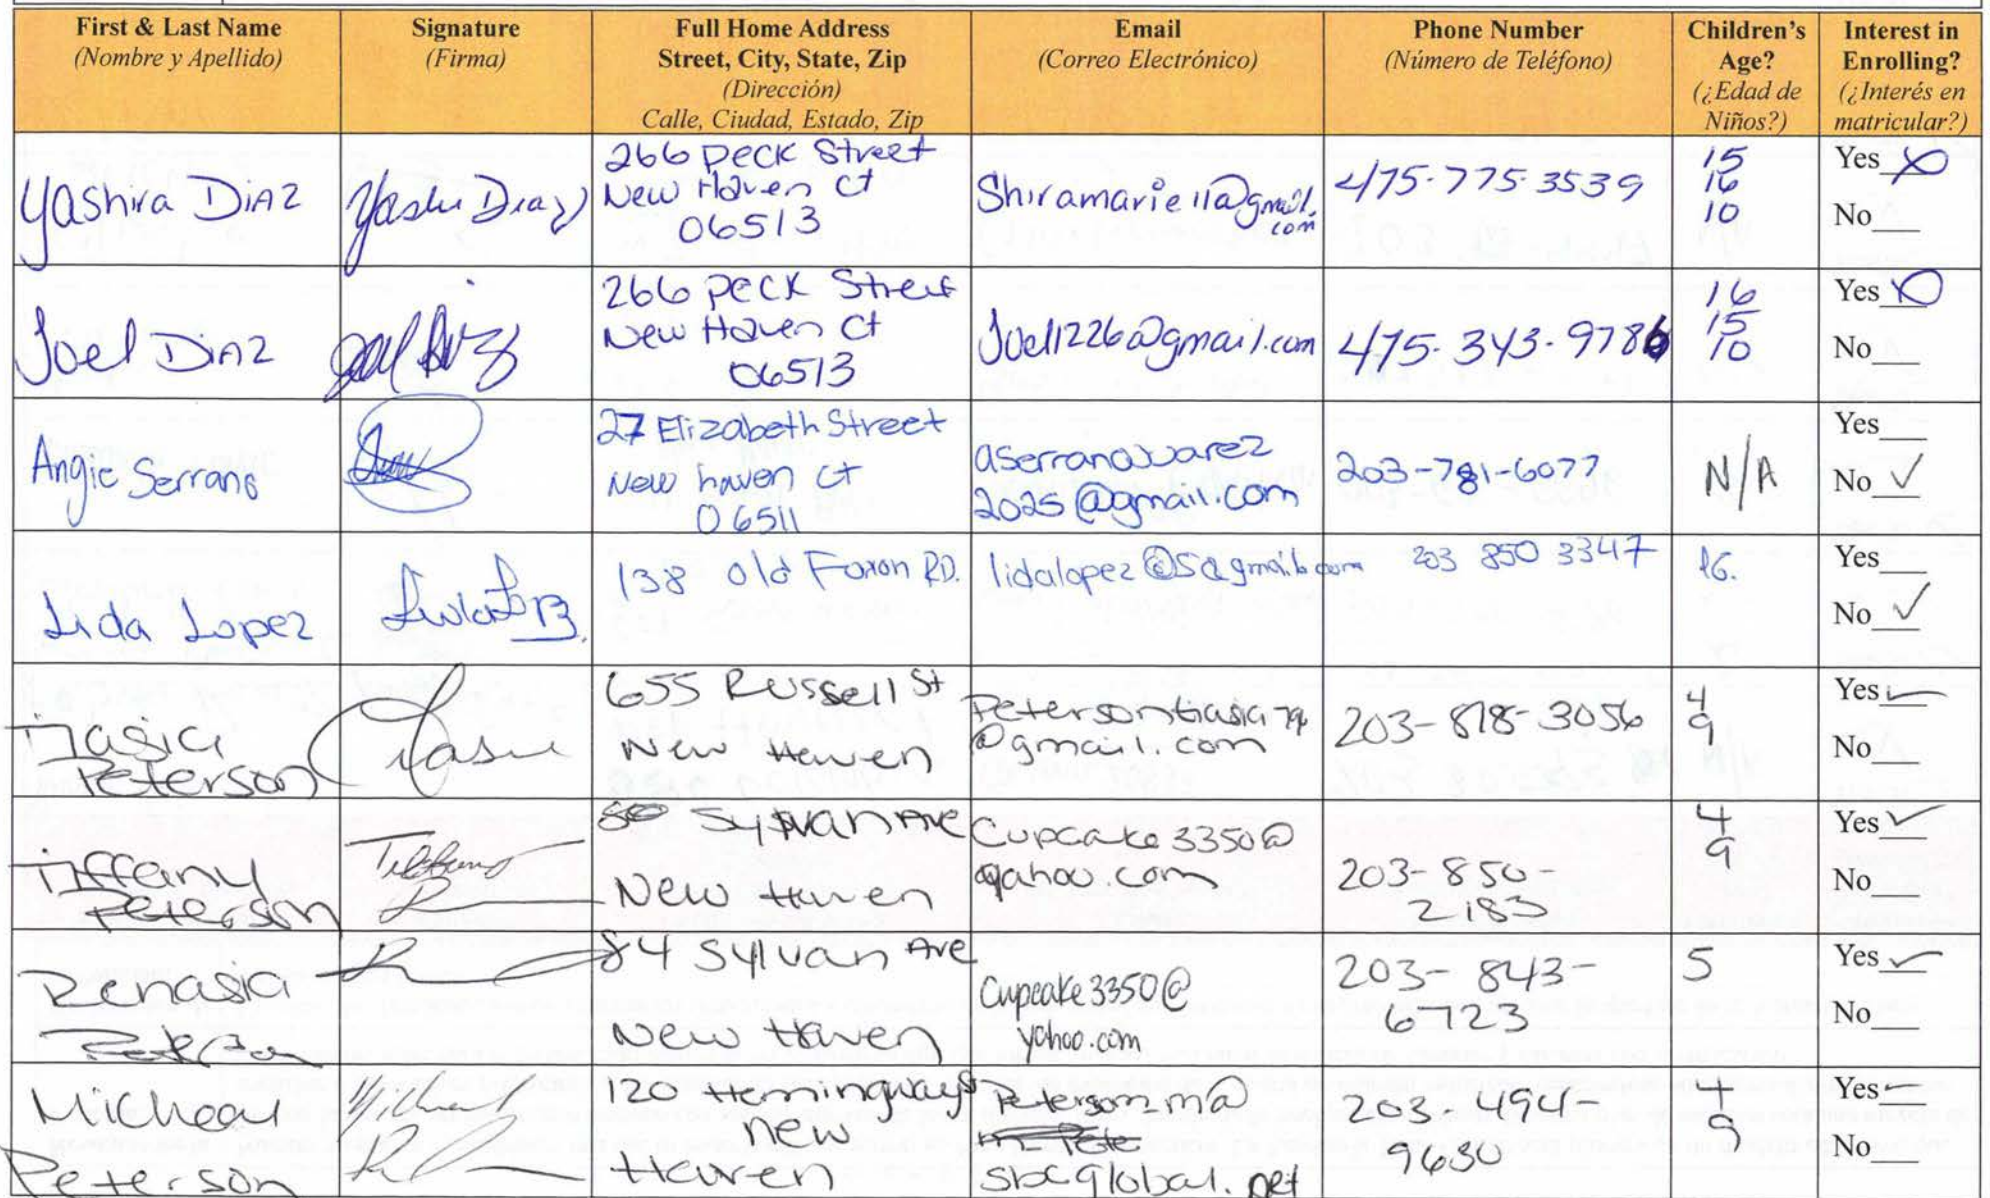 First & Last Name
(Nombre y Apellido)
Signature
(Firma)
Full Home Address
Street, City, State, Zip
(Dirección)
Calle, Ciudad, Estado, Zip
Email
(Correo Electrónico)
Phone Number
(Número de Teléfono)
Children's
Age?
(¿Edad de
Niños?)
Interest in
Enrolling?
(¿Interés en
matricular?)
Yashira Diaz
266 Peck Street
New Haven Ct
06513
Shiramarie11@gmail.
com
475-775-3539
15
16
10
Yes X
No
Joel Diaz
266 Peck Street
New Haven Ct
06513
Joel1226@gmail.com
475-343-9786
16
15
10
Yes X
No
Angie Serrano
27 Elizabeth Street
New haven ct
06511
2025@gmail.com
203-781-6077
N/A
Yes
No ✓
Lida Lopez
138 Old Foxon RD.
203 850 3347
16.
Yes
No ✓
Tiasia
Peterson
655 Russell St
New Haven
@gmail.com
203-818-3056
4
9
Yes ✓
No
Tiffany
Peterson
Sylvan Ave
New Haven
Cupcake3350@
yahoo.com
203-850-
2183
4
9
Yes ✓
No
Zenasia
Peterson
84 Sylvan Ave
New Haven
Cupcake3350@
yahoo.com
203-843-
6723
5
Yes ✓
No
Micheal
Peterson
120 Hemingway St
New
Haven
Peterson_m@
sbcglobal.net
203-494-
9630
4
9
Yes
No